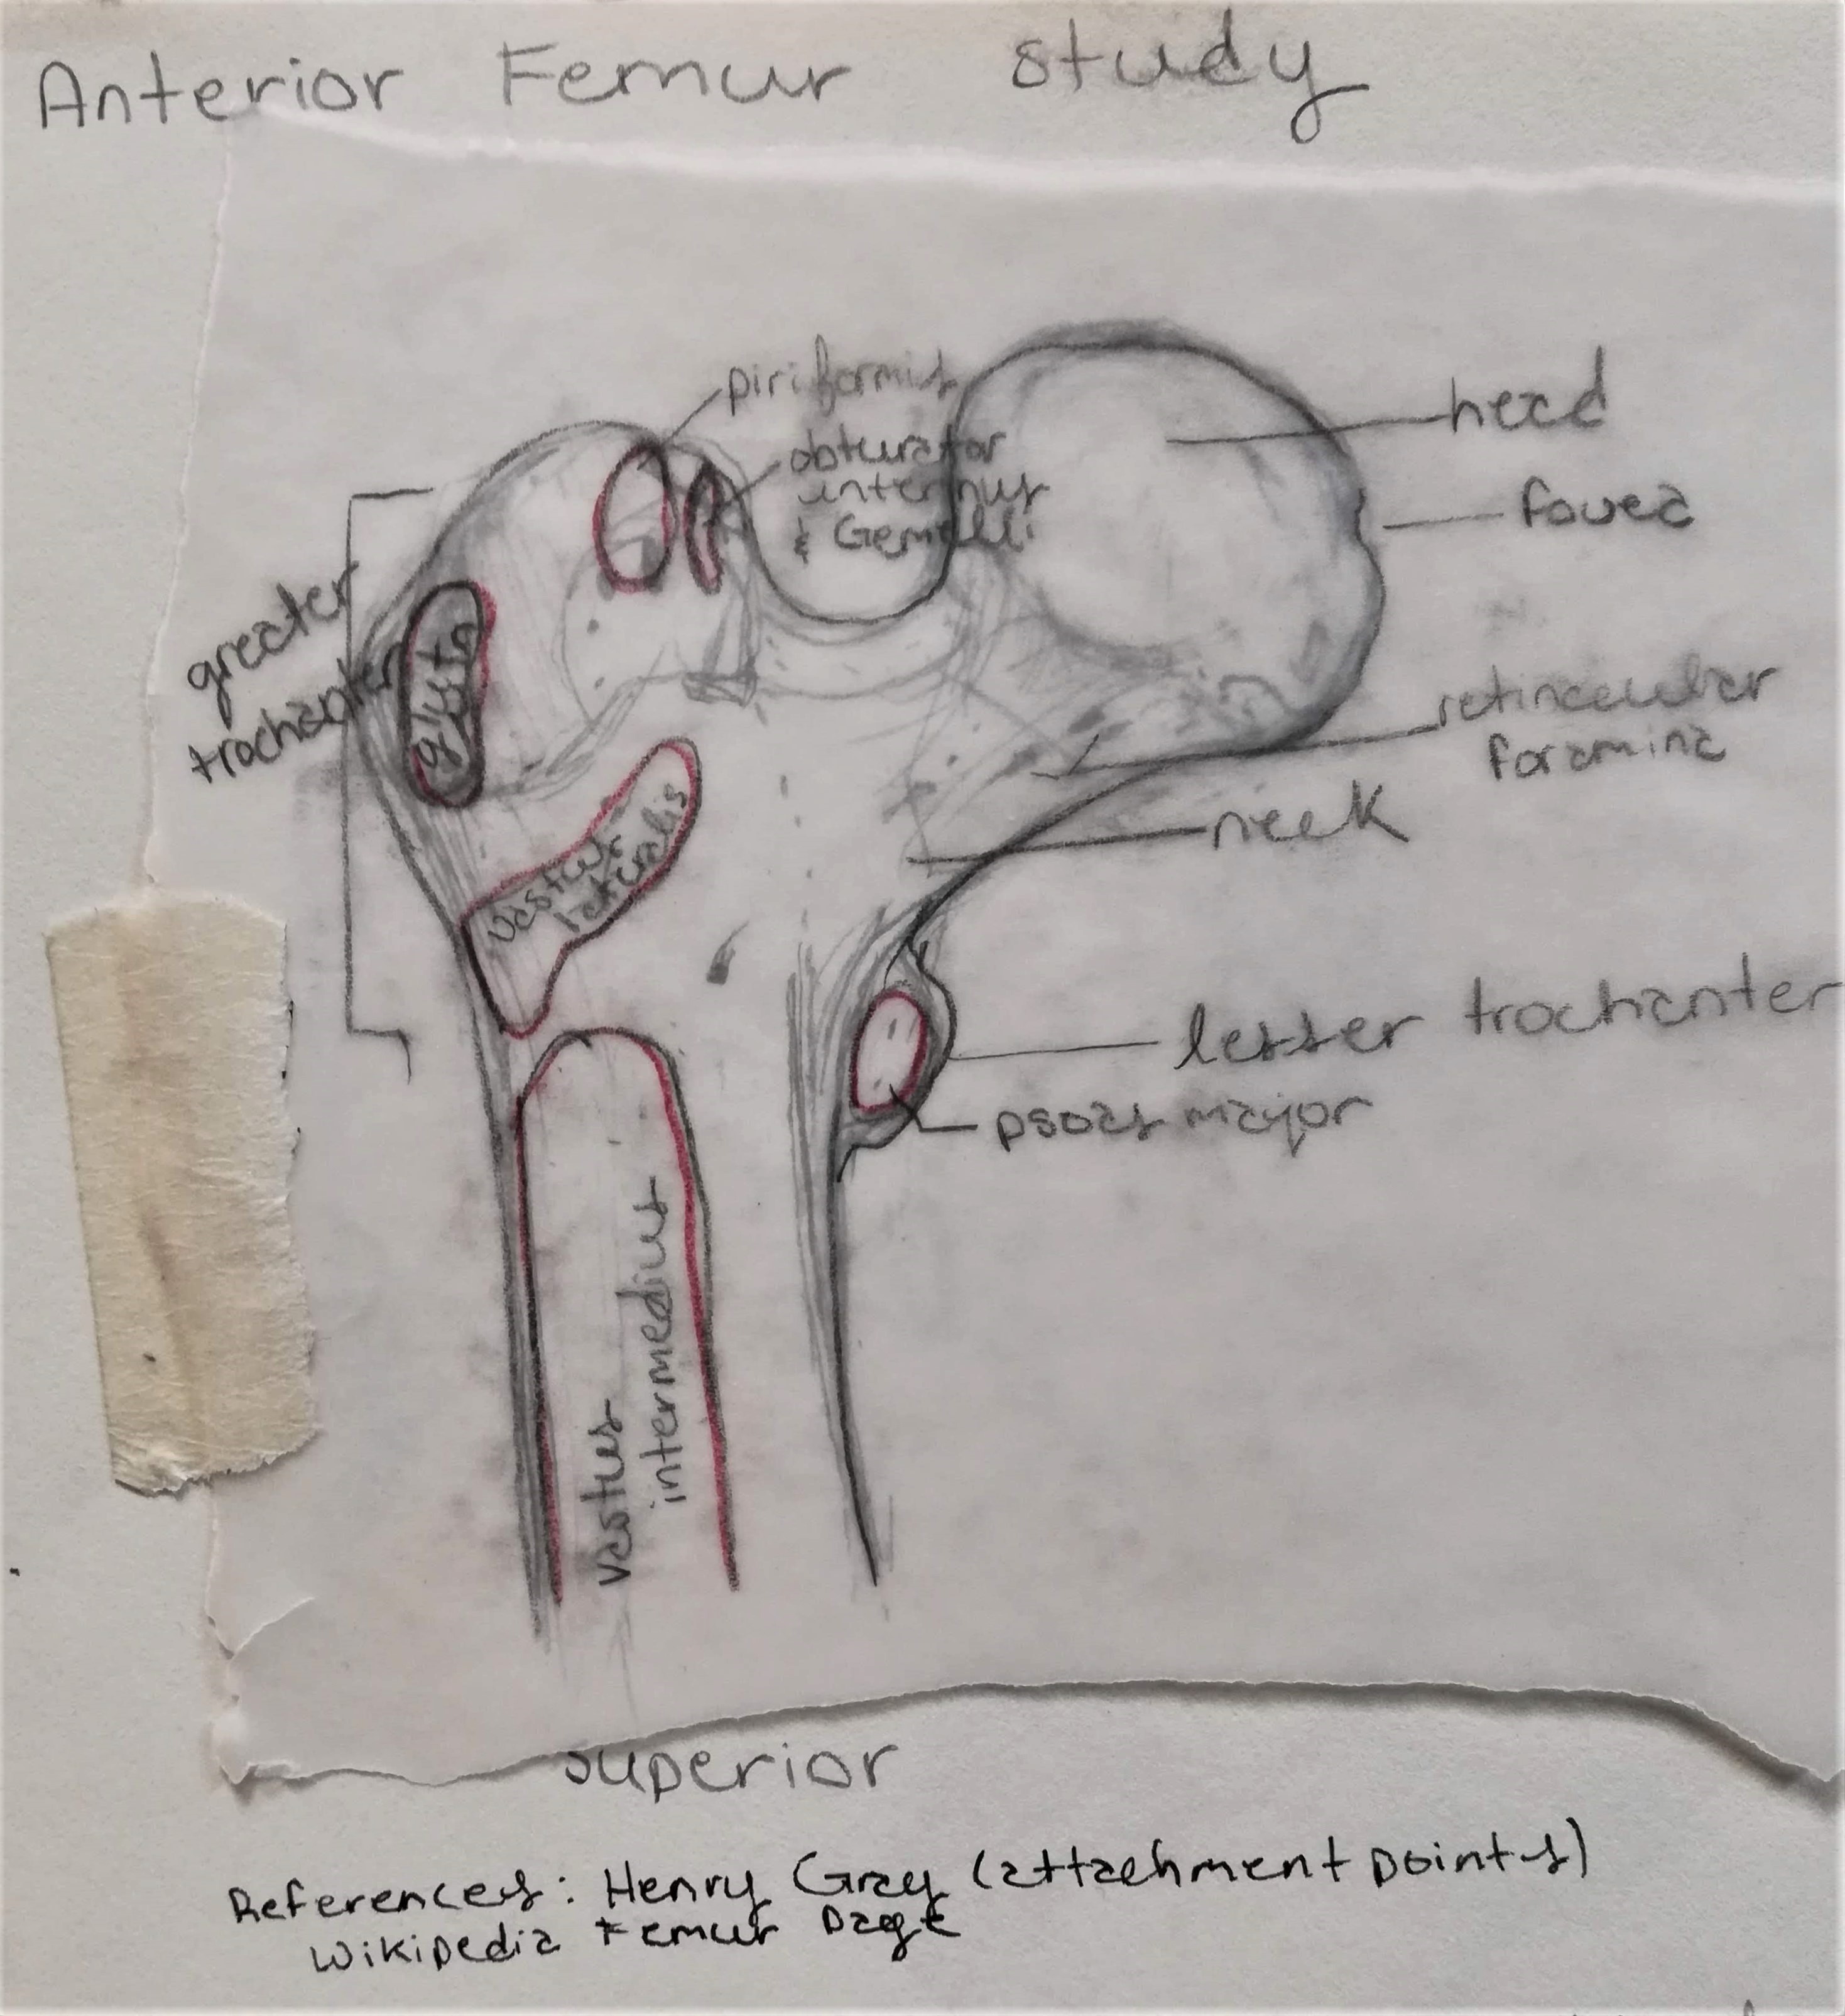 Anterior Femur study
piriformis
obturator
internus
& Gemelli
head
fovea
greater
trochanter
retinacular
foramina
vastus
lateralis
neck
lesser trochanter
psoas major
vastus
intermedius
superior
References: Henry Gray (attachment points)
Wikipedia Femur Page